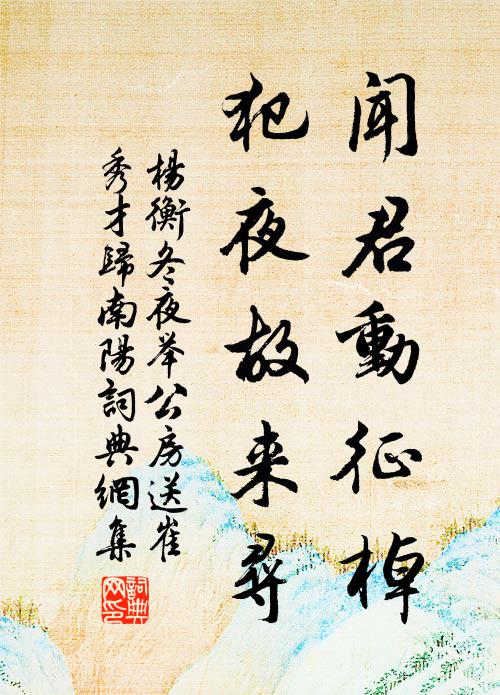 闻君動征棹
犯夜故来尋
楊衡冬夜举公房送崔
秀才歸南陽詞典網集
詞典網印